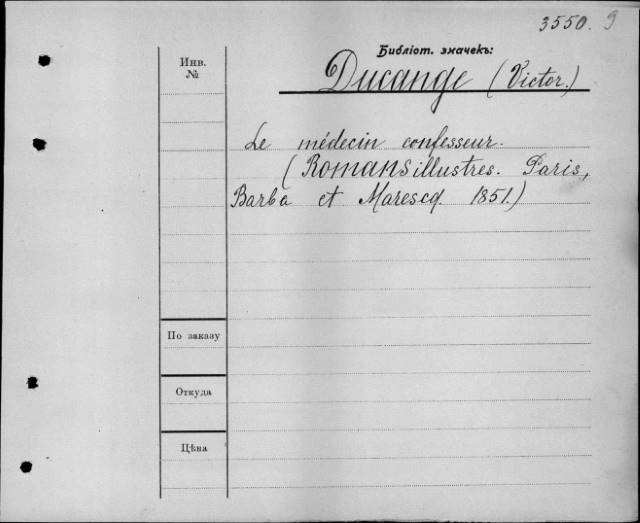 3550. 9
Библіот. значекъ:
Инв.
№
Ducange (Victor.)
Le médecin confesseur.
(Romans illustres. Paris,
Barba et Marescq. 1851.)
По заказу
Откуда
Цѣна